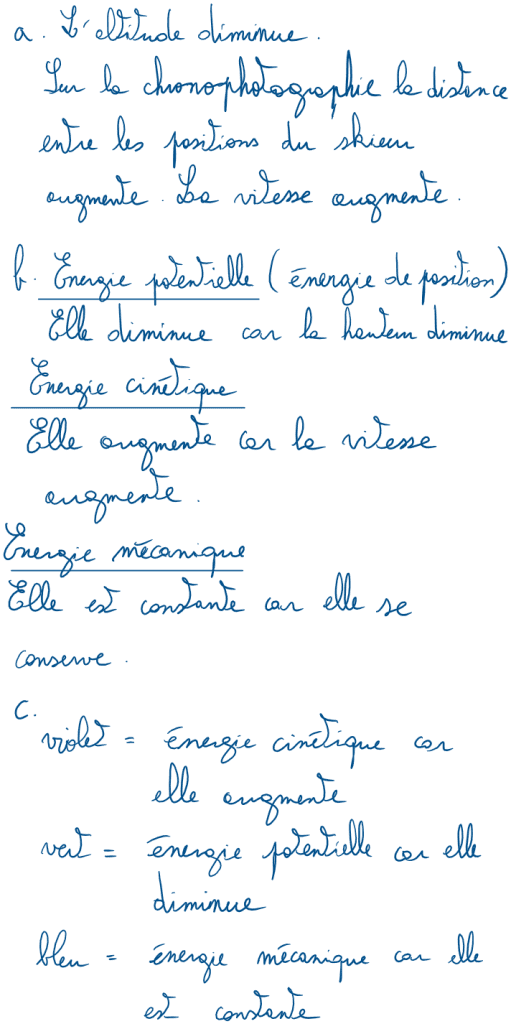 a. L'altitude diminue.
Sur la chronophotographie la distance
entre les positions du skieur
augmente. La vitesse augmente.
b. Énergie potentielle (énergie de position)
Elle diminue car la hauteur diminue
Énergie cinétique
Elle augmente car la vitesse
augmente.
Énergie mécanique
Elle est constante car elle se
conserve.
C.
violet = énergie cinétique car
elle augmente
vert = énergie potentielle car elle
diminue
bleu = énergie mécanique car elle
est constante